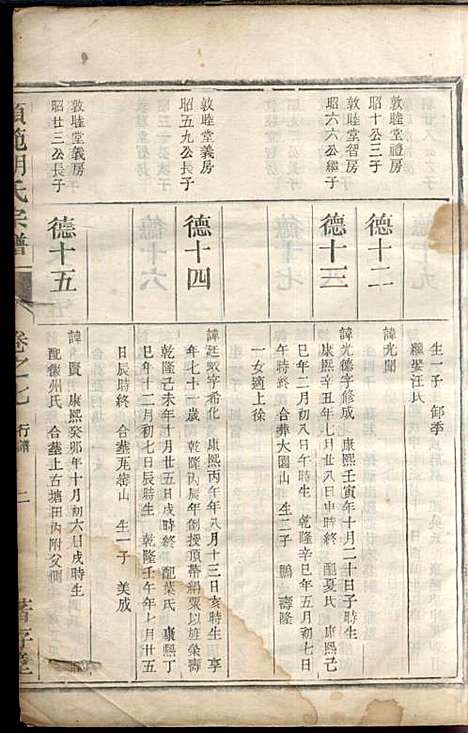 生一子 卸季
繼娶汪氏
敦睦堂禮房
昭十公三子
德十二
諱光開
敦睦堂智房
昭六六公繼子
德十三
諱光德字修成 康熙壬寅年十月二十日子時生
康熙辛丑年七月廿八日申時終 配夏氏 康熙己
巳年二月初八日午時生 乾隆辛巳年五月初七日
午時終 合葬大園山 生二子 鵬 壽隆
一女適上徐
敦睦堂義房
昭五九公長子
德十四
諱廷蛟字希化 康熙丙午年八月十三日亥時生 享
年七十一歲 乾隆丙辰年創授頂帶絹粟以旌榮壽
乾隆己未年十月廿五日戌時終 配葉氏 康熙丁
巳年十二月初七日辰時生 乾隆壬午年七月廿五
日辰時終 合墓 山 生一子 美成
敦睦堂義房
昭廿三公長子
德十五
諱賢 康熙癸卯年十月初六日戌時生
配 州氏 合墓上古塘田內附父側
範胡氏宗譜
卷之七 行譜 二